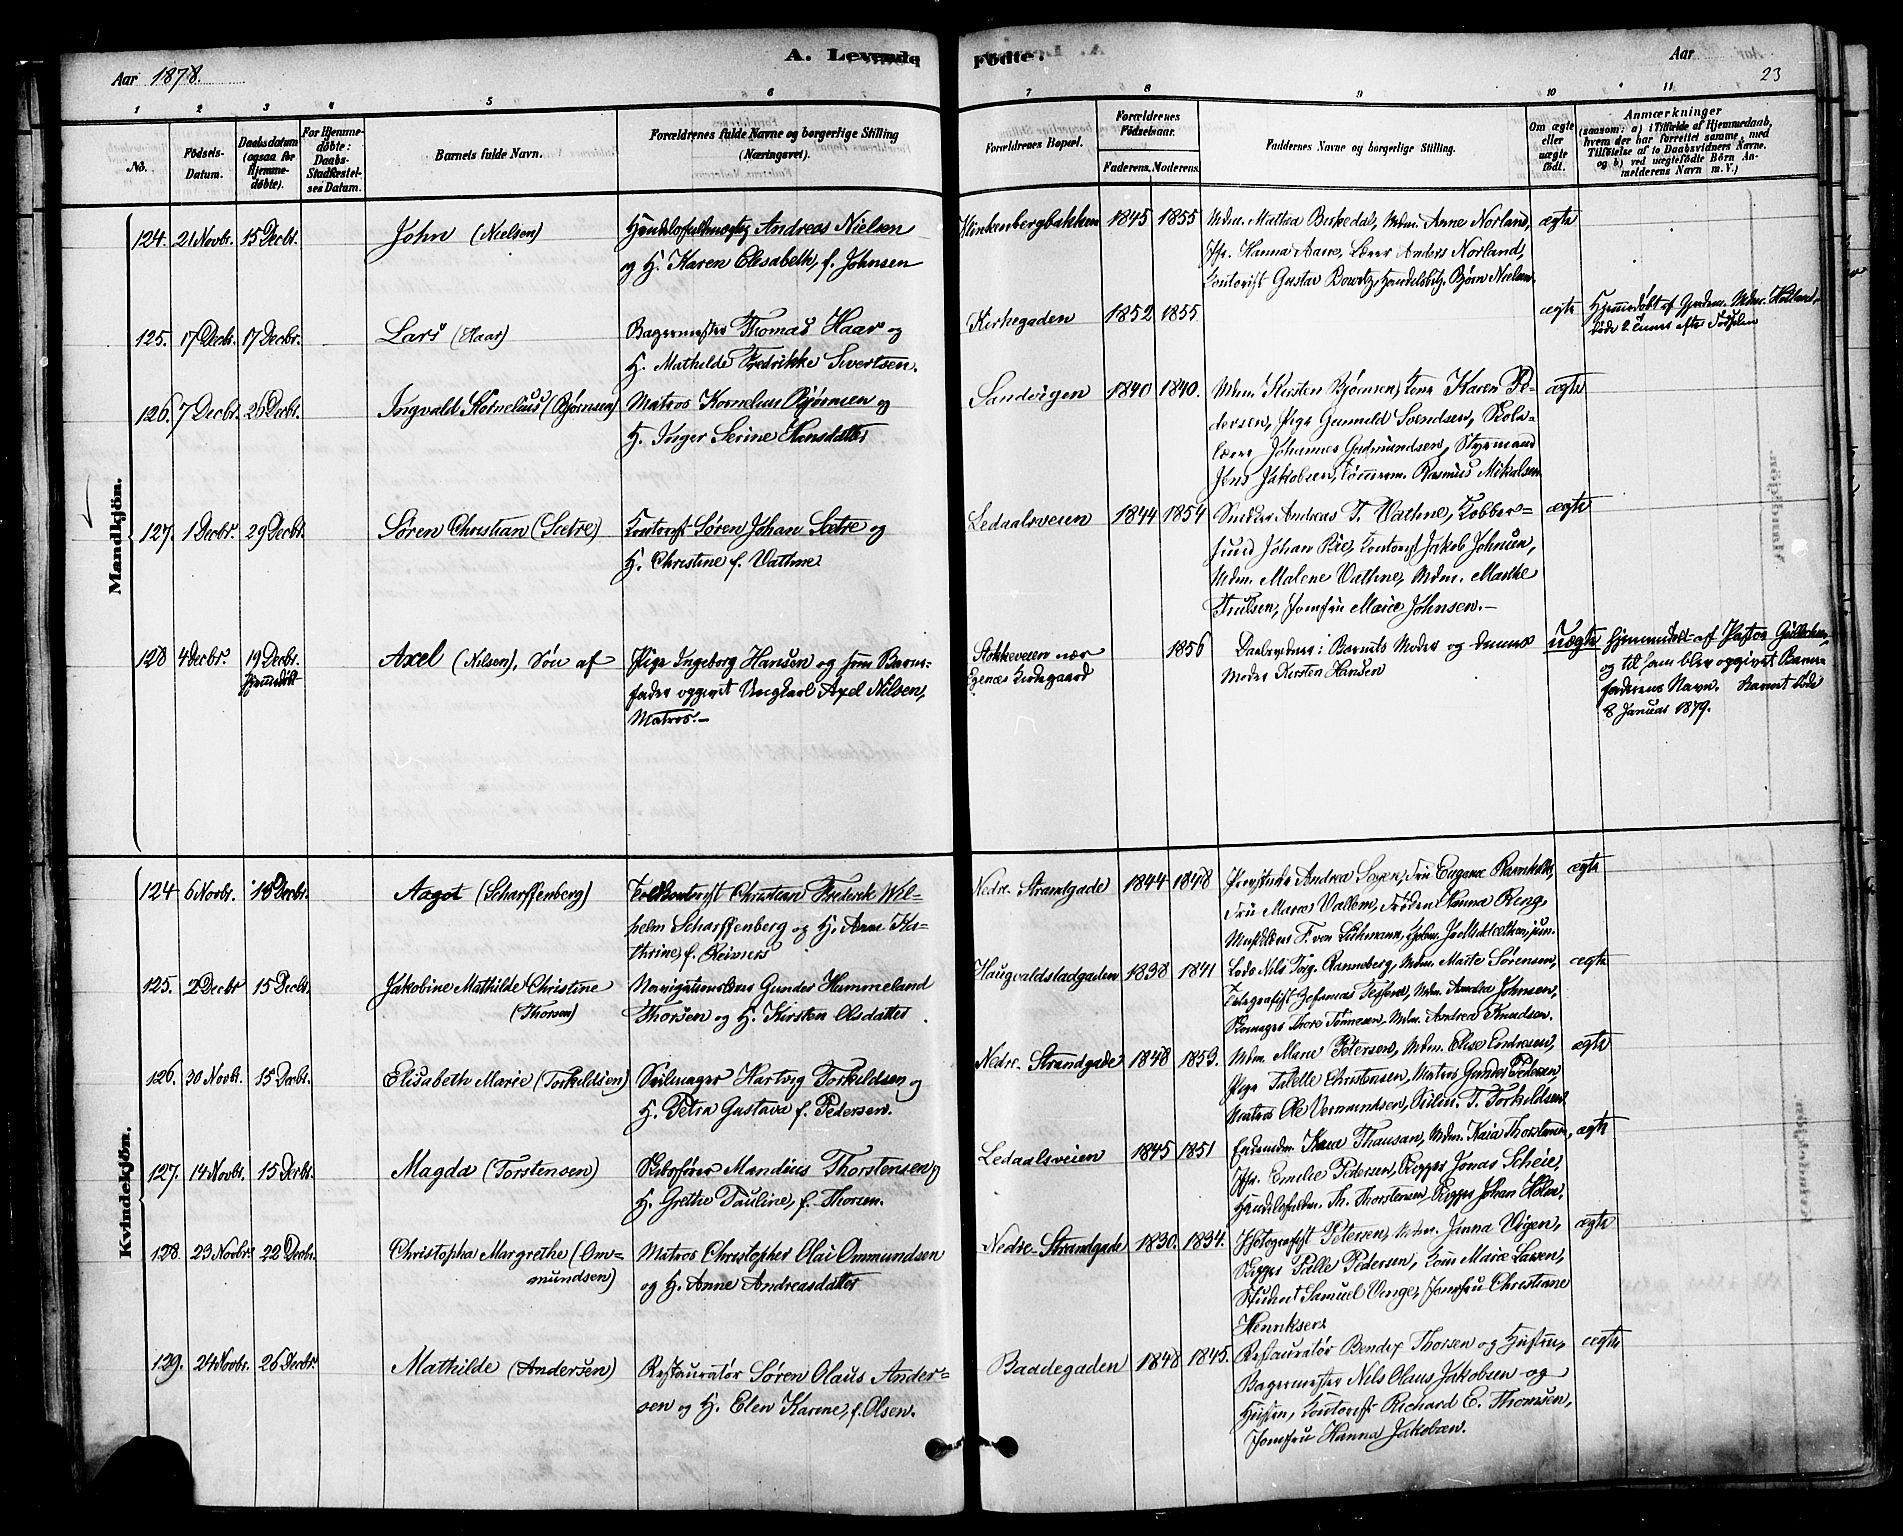 A. Levende Fødte.
Aar 1878.
Aar
23
1 2 3 4 5 6 7 8 9 10 11
No.
Fødsels-Datum.
Daabsdatum (ogsaa for Hjemmedøbte).
For Hjemmedøbte: Daabs-Stadfæstelses Datum.
Barnets fulde Navn.
Forældrenes fulde Navne og borgerlige Stilling (Næringsvei).
Forældrenes Bopæl.
Forældrenes Fødselsaar.
Faderens. Moderens.
Faddernes Navne og borgerlige Stilling.
Om ægte eller uægte født.
Anmærkninger
(saasom: a) i Tilfælde af Hjemmedaab, hvem der har forrettet samme, med Tilføielse af to Daabsvidners Navne, og b) ved uægtefødte Børn Anmelderens Navn m. V.)
Mandkjön.
124. 21 Novbr. 15 Decbr. John (Nielsen)
Handelsfuldmægtig Andreas Nielsen
og H. Karen Elisabeth, f. Johnsen
Klinkenbergbakken 1845 1855
Mdm. Mathea Birkedal, Mdm. Anne Norland,
Jfr. Hanna Aare, Lærer Anders Norland,
Kontorist Gustav Bowitz, Handelsbetj. Bjørn Nielsen.
ægte
125. 17 Decbr. 17 Decbr. Lars (Haar)
Bagermester Thomas Haar og
H. Mathilde Fredrikke Sivertsen.
Kirkegaden 1852 1855
ægte
Hjemmedøbt af Gjordem. Mdm. Holland,
døde 2 Timer efter Fødselen
126. 7 Decbr. 26 Decbr. Ingvald Kornelius (Bjørnsen)
Matros Kornelius Bjørnsen og
H. Inger Serine Hansdatter
Sandvigen 1840 1840.
Mdm. Kirsten Bjørnsen, Kone Karen Pe-
dersen, Pige Gunnild Svendsen, Skole-
lærer Johannes Gudmundsen, Styrmand
Jens Jakobsen, Tømmerm. Rasmus Mikalsen
ægte
127. 1 Decbr. 29 Decbr. Søren Christian (Sætre)
Kontorist Søren Johan Sætre og
H. Christine f. Vathne
Ledaalsveien 1844 1854
Snedker Andreas T. Vathne, Kobber-
smed Johan Röe, Kontorist Jakob Johnsen,
Mdm. Malene Vathne, Mdm. Marthe
Trulsen, Jomfru Marie Johnsen.—
ægte
128 4 Decbr. 19 Decbr. Hjemmedøbt
Axel (Nilsen), Søn af
Pige Ingeborg Hansen og som Barne-
fader opgivet Ungkarl Axel Nilsen,
Matros.—
Stokkeveien nær
Egenæs Kirkegaard
1856
Daabsvidner: Barnets Moder og dennes
Moder Kirsten Hansen
uægte
Hjemmedøbt af Pastor
og til ham blev opgivet Barne-
faderens Navn. Barnet døde
8 Januar 1879.
Kvindekjön.
124 6 Novbr. 15 Decbr. Aagot (Scharffenberg)
Toldkontorist Christian Frederik Wil-
helm Scharffenberg og H. Anne Ka-
thrine, f. Reimers
Nedre-Strandgade 1844 1848
Andrea Fru Eugenie
Fru Marie Vallem, Frøken Hanna Reng,
ægte
125. 2 Decbr 15 Decbr. Jakobine Mathilde Christine
(Thorsen)
Navigationslærer Gunder Hummeland
Thorsen og H. Kirsten Olsdatter
Haugvaldstadgaden 1838 1841
Lods Nils Torg. Ranneberg, Mdm. Marte Sørensen,
Telegrafist Mdm. Andrea Johnsen,
Thore Tønnesen, Mdm. Andrea Knudsen.
ægte
126. 30 Novbr. 15 Decbr. Elisabeth Marie (Torkeldsen)
Seilmager Hartvig Torkildsen og
H. Petra Gustava f. Pedersen.
Nedre-Strandgade 1848 1853.
Mdm. Marie Petersen, Mdm. Elise Endresen,
Pige Talette Christensen, Matros Gunder Pedersen,
Matros Ole Vermundsen, Seilm. T. Torkildsen.
ægte
127. 14 Novbr. 15 Decbr. Magda (Torstensen)
Skibsfører Mandius Thorstensen og
H. Grethe Pauline, f. Thorsen.
Ledaalsveien 1845 1851
Mdm. Kaia Thorstensen,
Jfr. Emilie Pedersen, Rigger Jonas Scheie,
Handelsfuldm. Th. Thorstensen, Rigger Johan Holm.
ægte
128. 23 Novbr. 22 Decbr. Christopha Margrethe (Om-
mundsen)
Matros Christopher Olai Ommundsen
og H. Anne Andreasdatter
Nedre-Strandgade 1830. 1834.
Photografist Petersen, Mdm. Jinna Vigen,
Rigger Palle Pedersen, Kone Marie Larsen,
Student Samuel Vinge, Jomfru Christiane
Henriksen
ægte
129. 24 Novbr. 26 Decbr Mathilde (Andersen)
Restauratør Søren Olaus Ander-
sen og H. Elen Karine, f. Olsen.
Baadegaden 1848 1845.
Restauratør Bendix Thorsen og Hustru,
Bagermester Nils Olaus Jakobsen og
Hustru, Kontorist Richard E. Thomsen,
Jomfru Hanna Jakobsen.
ægte